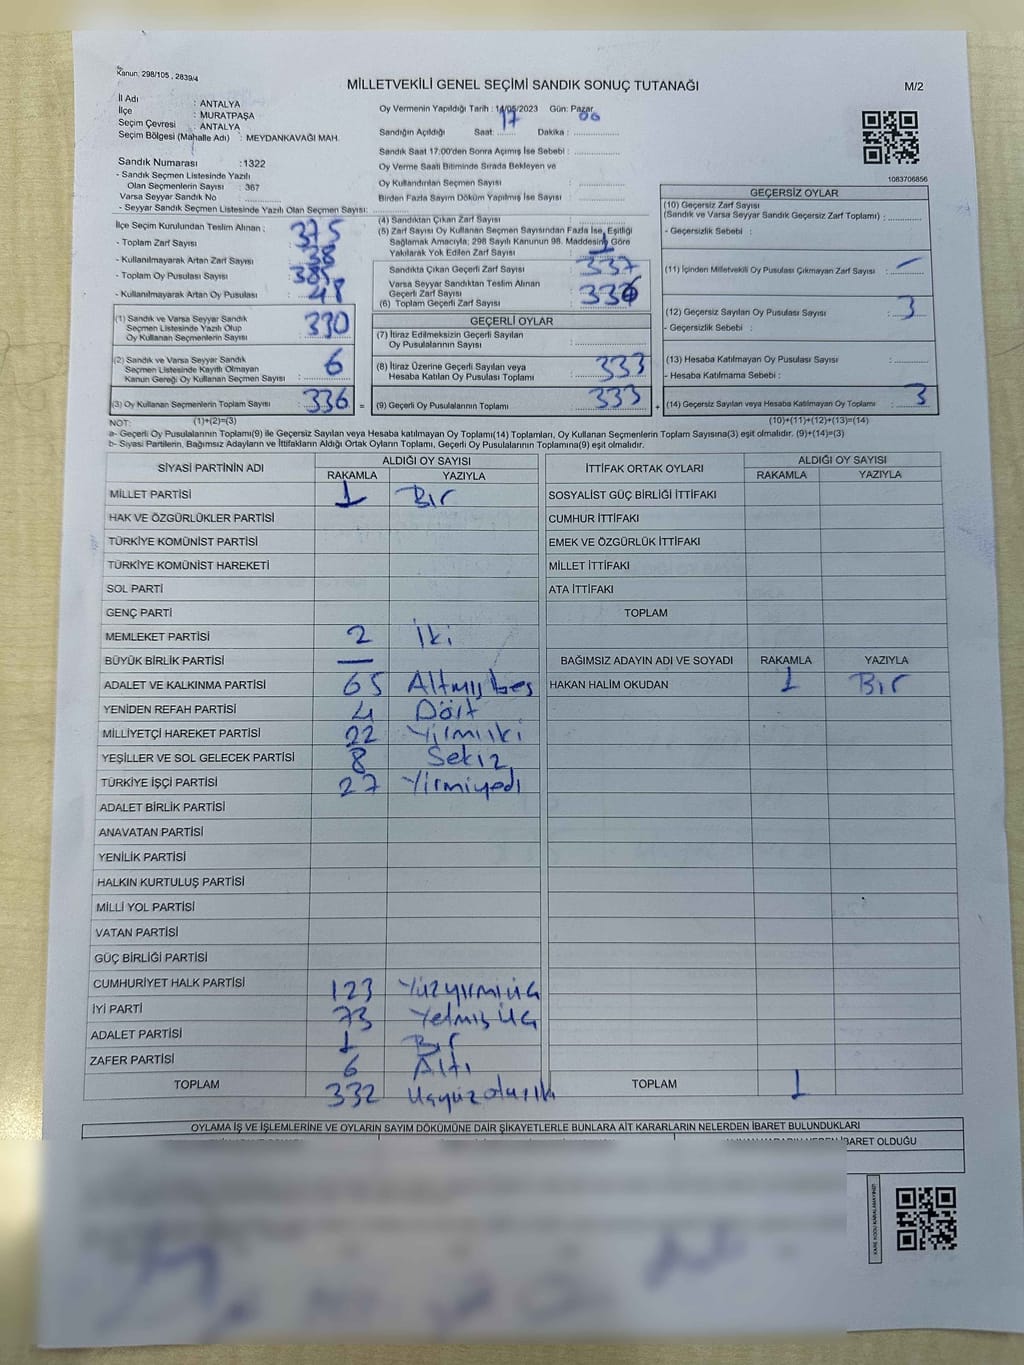 Kanun, 298/105 , 2839/4
MİLLETVEKİLİ GENEL SEÇİMİ SANDIK SONUÇ TUTANAĞI
M/2
İl Adı : ANTALYA
İlçe : MURATPAŞA
Seçim Çevresi : ANTALYA
Seçim Bölgesi (Mahalle Adı) : MEYDANKAVAĞI MAH.
Sandık Numarası :1322
- Sandık Seçmen Listesinde Yazılı
Olan Seçmenlerin Sayısı : 367
Varsa Seyyar Sandık No
- Seyyar Sandık Seçmen Listesinde Yazılı Olan Seçmen Sayısı:
Oy Vermenin Yapıldığı Tarih : 14/05/2023 Gün: Pazar
Sandığın Açıldığı Saat: 17 Dakika : 00
Sandık Saat 17:00'den Sonra Açımış İse Sebebi :
Oy Verme Saati Bitiminde Sırada Bekleyen ve
Oy Kullandırılan Seçmen Sayısı :
Birden Fazla Sayım Döküm Yapılmış İse Sayısı :
1083706856
İlçe Seçim Kurulundan Teslim Alınan ;
- Toplam Zarf Sayısı : 375
- Kullanılmayarak Artan Zarf Sayısı : 38
- Toplam Oy Pusulası Sayısı : 385
- Kullanılmayarak Artan Oy Pusulası : 48
(1) Sandık ve Varsa Seyyar Sandık
Seçmen Listesinde Yazılı Olup
Oy Kullanan Seçmenlerin Sayısı : 330
(2) Sandık ve Varsa Seyyar Sandık
Seçmen Listesinde Kayıtlı Olmayan
Kanun Gereği Oy Kullanan Seçmen Sayısı : 6
(3) Oy Kullanan Seçmenlerin Toplam Sayısı : 336
(4) Sandıktan Çıkan Zarf Sayısı :
(5) Zarf Sayısı Oy Kullanan Seçmen Sayısından Fazla İse, Eşitliği
Sağlamak Amacıyla; 298 Sayılı Kanunun 98. Maddesine Göre
Yakılarak Yok Edilen Zarf Sayısı : 1
Sandıkta Çıkan Geçerli Zarf Sayısı : 337
Varsa Seyyar Sandıktan Teslim Alınan
Geçerli Zarf Sayısı
(6) Toplam Geçerli Zarf Sayısı : 336
GEÇERLİ OYLAR
(7) İtiraz Edilmeksizin Geçerli Sayılan
Oy Pusulalarının Sayısı :
(8) İtiraz Üzerine Geçerli Sayılan veya
Hesaba Katılan Oy Pusulası Toplamı : 333
= (9) Geçerli Oy Pusulalarının Toplamı : 333
GEÇERSİZ OYLAR
(10) Geçersiz Zarf Sayısı
(Sandık ve Varsa Seyyar Sandık Geçersiz Zarf Toplamı) :
- Geçersizlik Sebebi :
(11) İçinden Milletvekili Oy Pusulası Çıkmayan Zarf Sayısı : –
(12) Geçersiz Sayılan Oy Pusulası Sayısı : 3
- Geçersizlik Sebebi :
(13) Hesaba Katılmayan Oy Pusulası Sayısı :
- Hesaba Katılmama Sebebi :
+ (14) Geçersiz Sayılan veya Hesaba Katılmayan Oy Toplamı : 3
NOT: (1)+(2)=(3) (10)+(11)+(12)+(13)=(14)
a- Geçerli Oy Pusulalarının Toplamı(9) ile Geçersiz Sayılan veya Hesaba katılmayan Oy Toplamı(14) Toplamları, Oy Kullanan Seçmenlerin Toplam Sayısına(3) eşit olmalıdır. (9)+(14)=(3)
b- Siyasi Partilerin, Bağımsız Adayların ve İttifakların Aldığı Ortak Oyların Toplamı, Geçerli Oy Pusulalarının Toplamına(9) eşit olmalıdır.
SİYASİ PARTİNİN ADI ALDIĞI OY SAYISI
RAKAMLA YAZIYLA
MİLLET PARTİSİ 1 Bir
HAK VE ÖZGÜRLÜKLER PARTİSİ
TÜRKİYE KOMÜNİST PARTİSİ
TÜRKİYE KOMÜNİST HAREKETİ
SOL PARTİ
GENÇ PARTİ
MEMLEKET PARTİSİ 2 İki
BÜYÜK BİRLİK PARTİSİ —
ADALET VE KALKINMA PARTİSİ 65 Altmış beş
YENİDEN REFAH PARTİSİ 4 Dört
MİLLİYETÇİ HAREKET PARTİSİ 22 Yirmiiki
YEŞİLLER VE SOL GELECEK PARTİSİ 8 Sekiz
TÜRKİYE İŞÇİ PARTİSİ 27 Yirmiyedi
ADALET BİRLİK PARTİSİ
ANAVATAN PARTİSİ
YENİLİK PARTİSİ
HALKIN KURTULUŞ PARTİSİ
MİLLİ YOL PARTİSİ
VATAN PARTİSİ
GÜÇ BİRLİĞİ PARTİSİ
CUMHURİYET HALK PARTİSİ 123 Yüzyirmiüç
İYİ PARTİ 73 Yetmiş üç
ADALET PARTİSİ 1 Bir
ZAFER PARTİSİ 6 Altı
TOPLAM 332
İTTİFAK ORTAK OYLARI ALDIĞI OY SAYISI
RAKAMLA YAZIYLA
SOSYALİST GÜÇ BİRLİĞİ İTTİFAKI
CUMHUR İTTİFAKI
EMEK VE ÖZGÜRLÜK İTTİFAKI
MİLLET İTTİFAKI
ATA İTTİFAKI
TOPLAM
BAĞIMSIZ ADAYIN ADI VE SOYADI RAKAMLA YAZIYLA
HAKAN HALİM OKUDAN 1 Bir
TOPLAM 1
OYLAMA İŞ VE İŞLEMLERİNE VE OYLARIN SAYIM DÖKÜMÜNE DAİR ŞİKAYETLERLE BUNLARA AİT KARARLARIN NELERDEN İBARET BULUNDUKLARI
İBARET OLDUĞU
KARE KODU KARALAMAYINIZ!